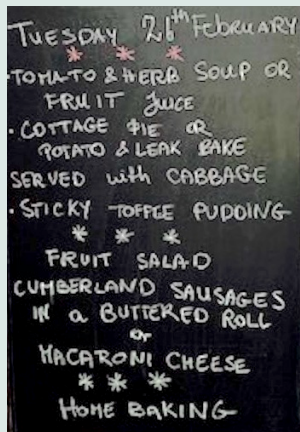 TUESDAY 26th FEBRUARY
* * *
• TOMATO & HERB SOUP OR
FRUIT JUICE
• COTTAGE PIE OR
POTATO & LEAK BAKE
SERVED with CABBAGE
• STICKY TOFFEE PUDDING
* * *
FRUIT SALAD
CUMBERLAND SAUSAGES
IN a BUTTERED ROLL
or
MACARONI CHEESE
* * *
HOME BAKING